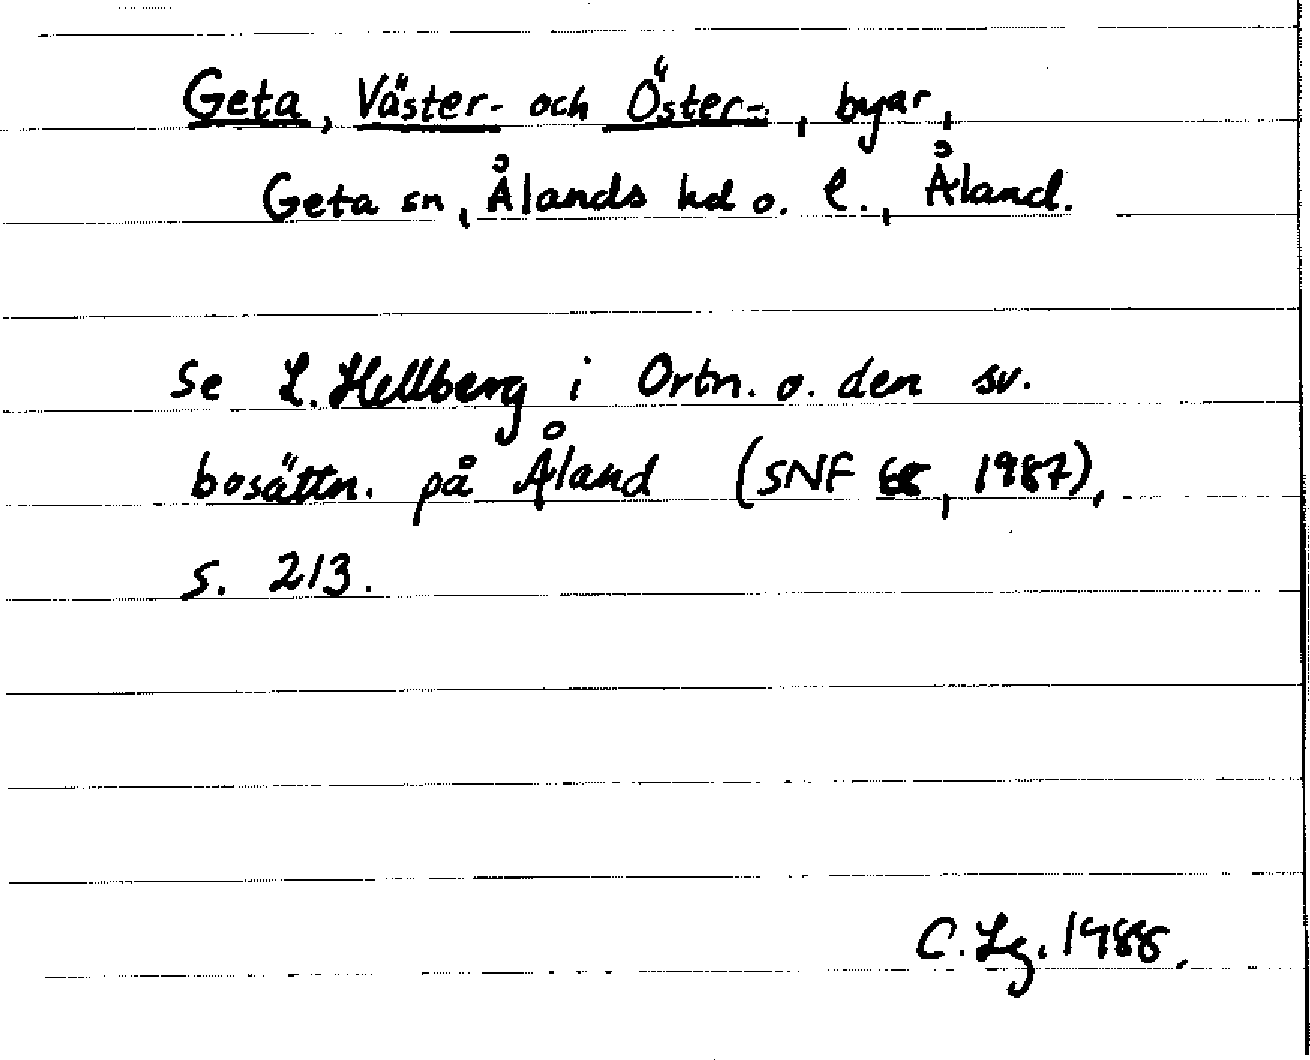 Geta, Väster- och Öster-, byar,
Geta sn, Ålands hd o. l., Åland.
Se L. Hellberg i Ortn. o. den sv.
bosättn. på Åland (SNF 68, 1987),
s. 213.
C. Lg. 1988.